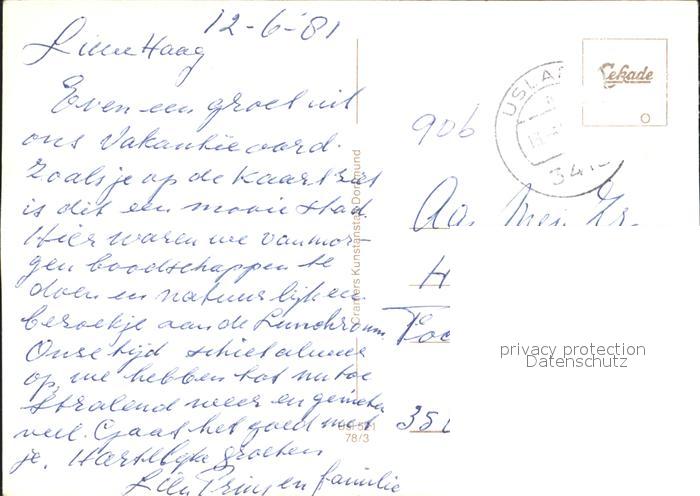 12-6-'81
Haag
Even een groet uit
ons Vakantieoord.
Zoals je op de Kaart ziet
is dit een mooie stad.
Hier waren we vanmor-
gen boodschappen te
doen en natuurlijk een
bezoekje aan de Lunchroom.
Onze tijd schiet alweer
op, we hebben tot nu toe
stralend weer en
veel. Gaat het goed met
je. Hartelijke groeten
Prins en familie
Cramers Kunstanstalt Dortmund
78/3
Cekade
USLA
34
906
Aa. Mej.
H
35
privacy protection
Datenschutz